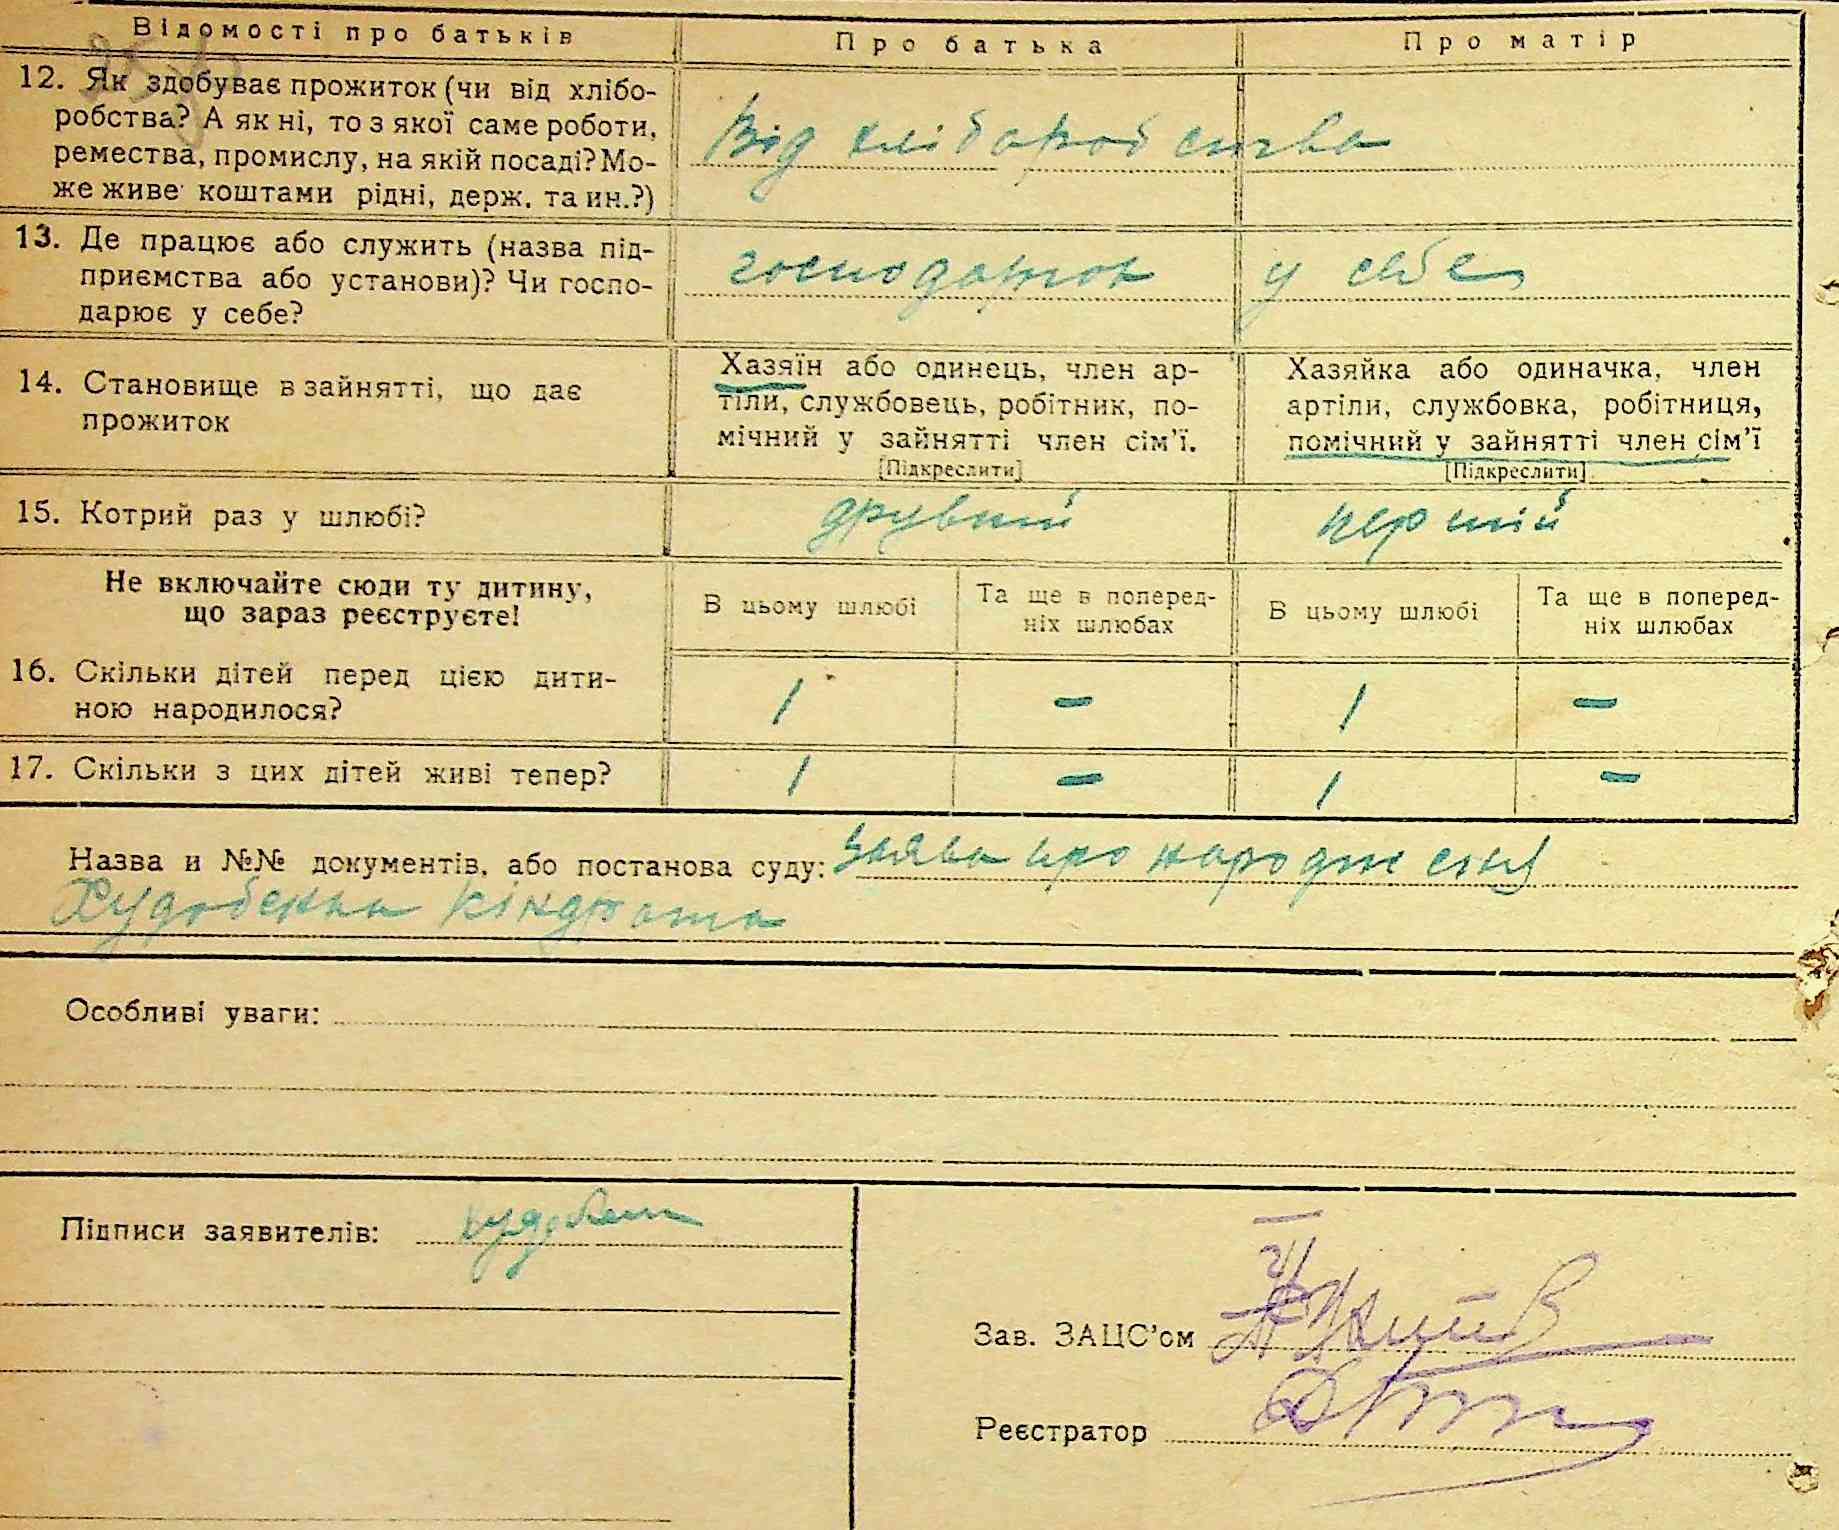 Відомості про батьків Про батька Про матір
12. Як здобуває прожиток (чи від хлібо-
робства? А як ні, то з якої саме роботи,
ремества, промислу, на якій посаді? Мо-
же живе коштами рідні, держ. та ин.?)
від хліборобства
13. Де працює або служить (назва під-
приємства або установи)? Чи госпо-
дарює у себе?
господарює у себе
14. Становище в зайнятті, що дає
прожиток
Хазяїн або одинець, член ар-
тіли, службовець, робітник, по-
мічний у зайнятті член сім'ї.
[Підкреслити]
Хазяйка або одиначка, член
артіли, службовка, робітниця,
помічний у зайнятті член сім'ї
[Підкреслити]
15. Котрий раз у шлюбі? другий перший
Не включайте сюди ту дитину,
що зараз реєструєте!
В цьому шлюбі
Та ще в поперед-
ніх шлюбах
В цьому шлюбі
Та ще в поперед-
ніх шлюбах
16. Скільки дітей перед цією дити-
ною народилося?
1 – 1 –
17. Скільки з цих дітей живі тепер? 1 – 1 –
Назва и №№ документів, або постанова суду: заява про народження
Худобенка Кіндрата
Особливі уваги:
Підписи заявителів: Худобен
Зав. ЗАЦС'ом
Реєстратор